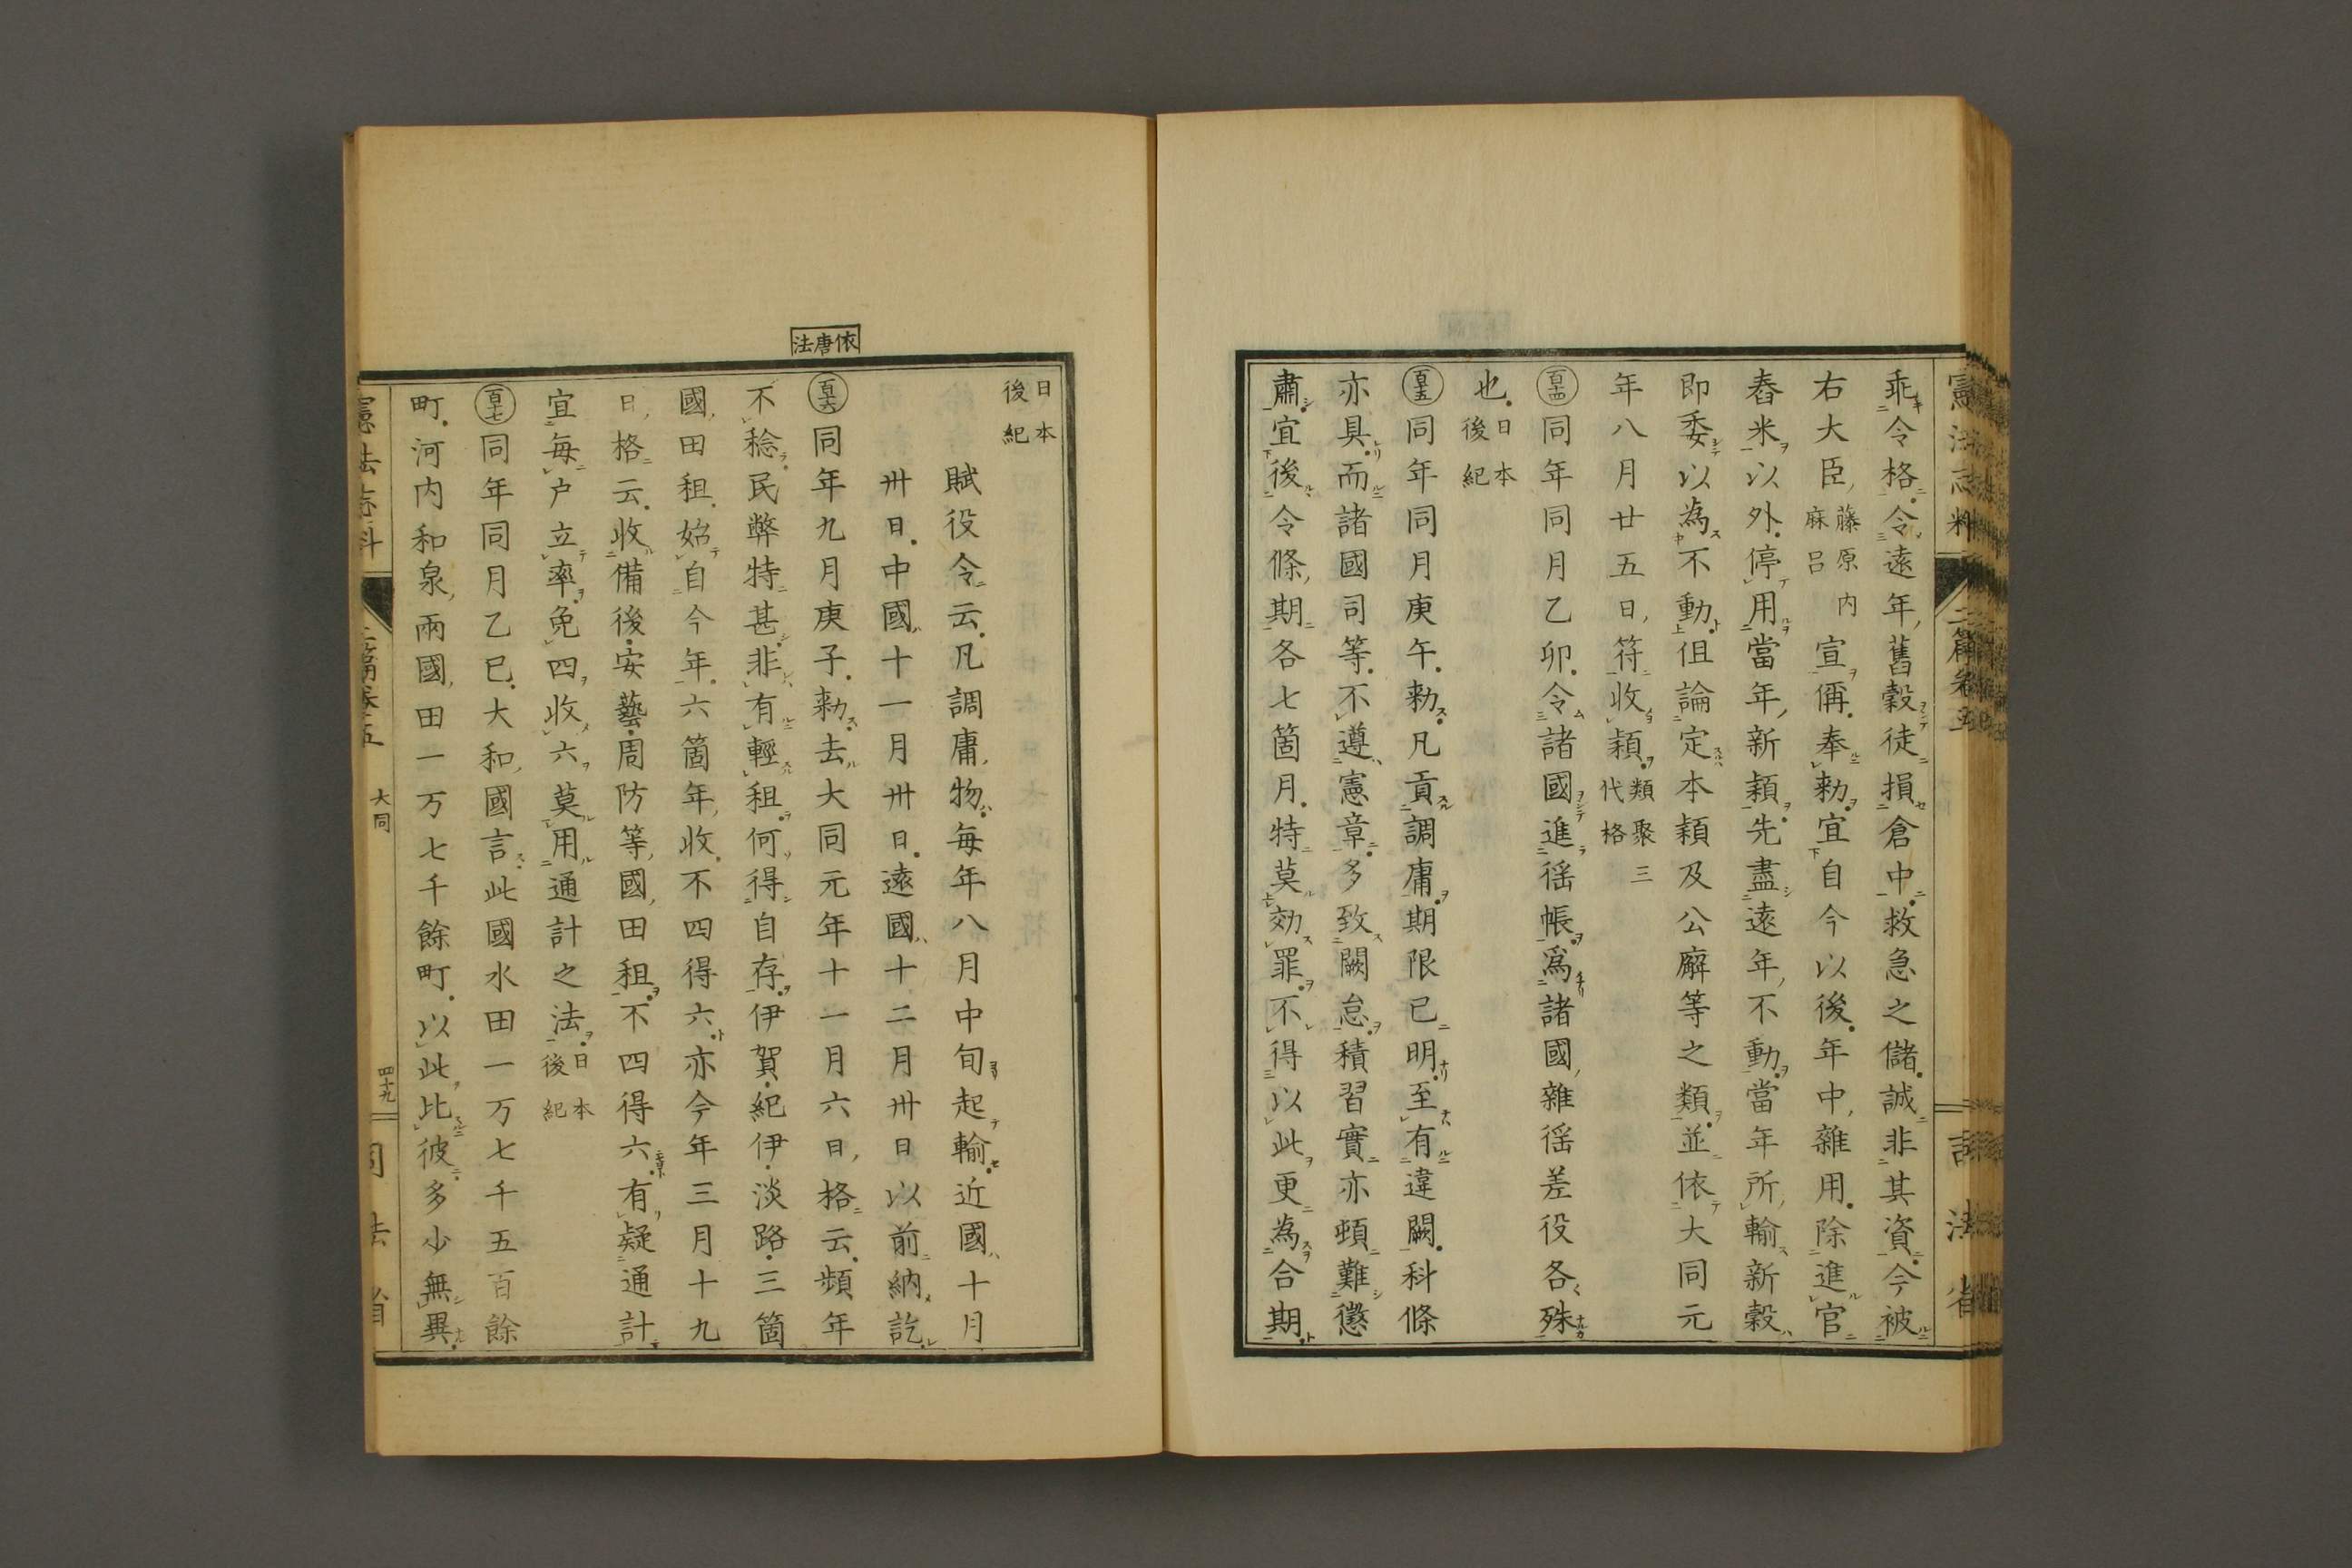 憲法志料
三篇卷五
司法省
乖令格令遠年舊穀徒損倉中救急之儲誠非其資今被
右大臣藤原内麻呂宣偁奉勅宜自今以後年中雜用除進官
舂米以外停用當年新穎先盡遠年不動當年所輸新穀
即委以為不動但論定本穎及公廨等之類並依大同元
年八月廿五日符收穎類聚三代格
百十四同年同月乙卯令諸國進徭帳爲諸國雜徭差役各殊
也日本後紀
百十五同年同月庚午勅凡貢調庸期限已明至有違闕科條
亦具而諸國司等不遵憲章多致闕怠積習實亦頓難懲
肅宜後令條期各七箇月特莫効罪不得以此更為合期
日本後紀
賦役令云凡調庸物每年八月中旬起輸近國十月
卅日中國十一月卅日遠國十二月卅日以前納訖
依唐法
百十六同年九月庚子勅去大同元年十一月六日格云頻年
不稔民弊特甚非有輕租何得自存伊賀紀伊淡路三箇
國田租始自今年六箇年收不四得六亦今年三月十九
日格云收備後安藝周防等國田租不四得六有疑通計
宜每戸立率免四收六莫用通計之法日本後紀
百十七同年同月乙巳大和國言此國水田一万七千五百餘
町河内和泉兩國田一万七千餘町以此比彼多少無異
憲法志料
三篇卷五
大同
四十九
司法省